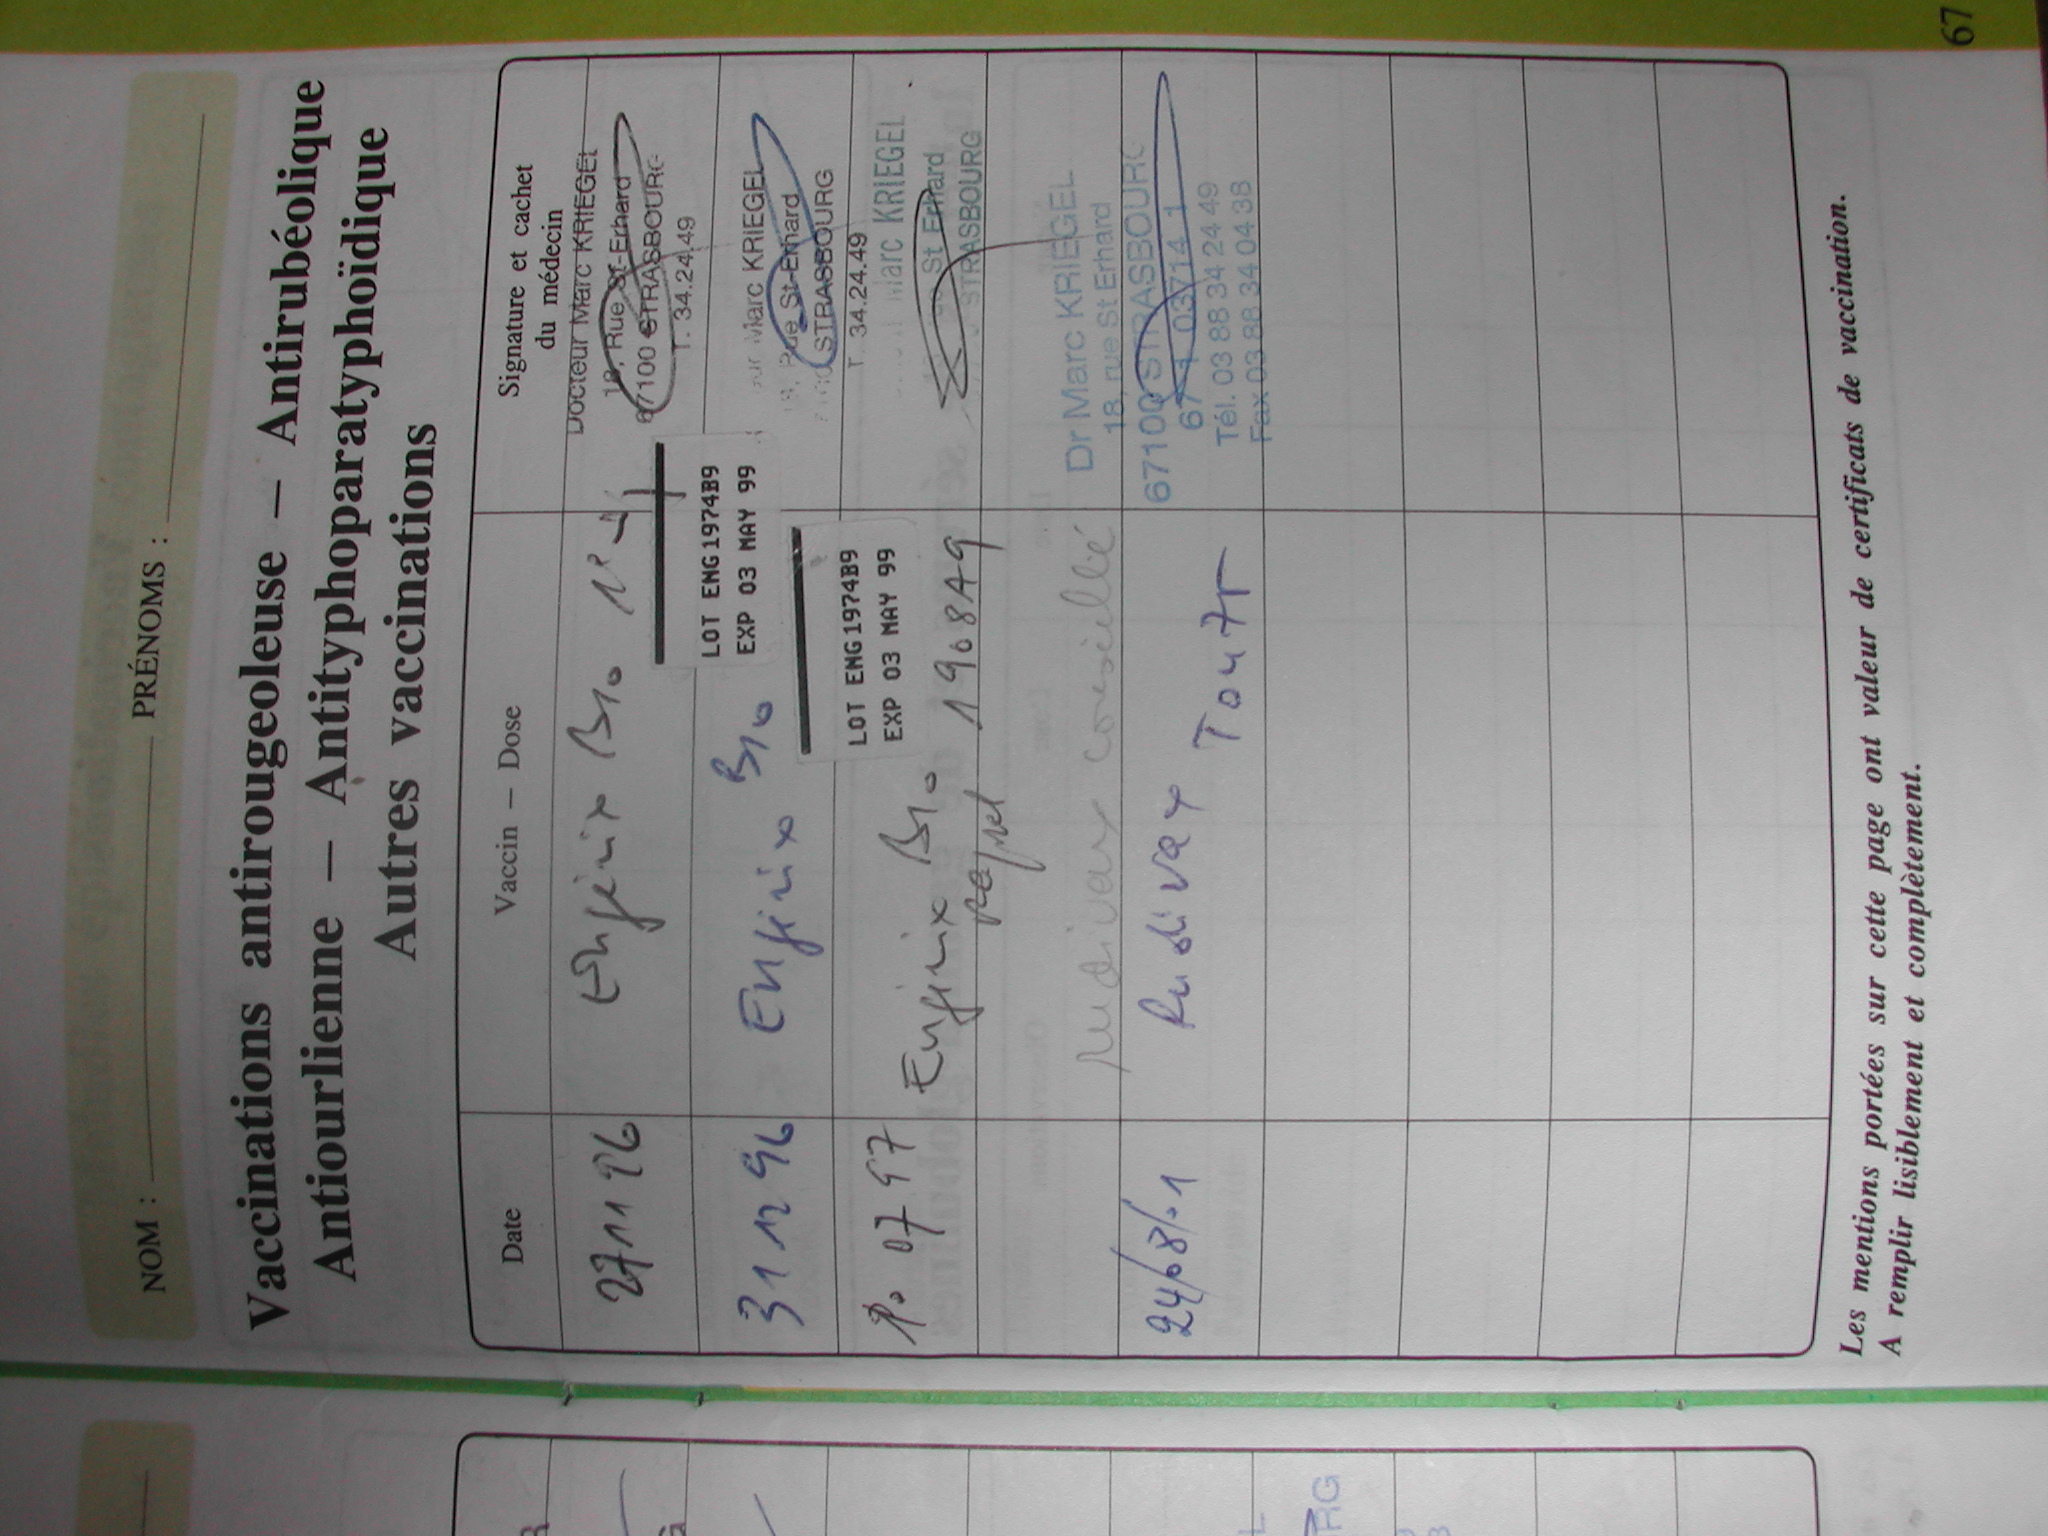 NOM : PRÉNOMS :
Vaccinations antirougeoleuse – Antirubéolique
Antiourlienne – Antityphoparatyphoïdique
Autres vaccinations
Date
Vaccin – Dose
Signature et cachet
du médecin
27 11 96
Engérix B10
Docteur Marc KRIEGEL
18, Rue St-Erhard
67100 STRASBOURG
T. 34.24.49
LOT ENG1974B9
EXP 03 MAY 99
31 12 96
Engerix B10
Marc KRIEGEL
18, Rue St-Erhard
STRASBOURG
T. 34.24.49
LOT ENG1974B9
EXP 03 MAY 99
07 97
Engerix B10 1908A9
Rappel
Marc KRIEGEL
St Erhard
STRASBOURG
Rudivax conseillé
24/08/01
Rudivax
Dr Marc KRIEGEL
18, rue St Erhard
67100 STRASBOURG
67 1 03714 1
Tél. 03 88 34 24 49
Fax 03 88 34 04 38
Les mentions portées sur cette page ont valeur de certificats de vaccination.
A remplir lisiblement et complètement.
67